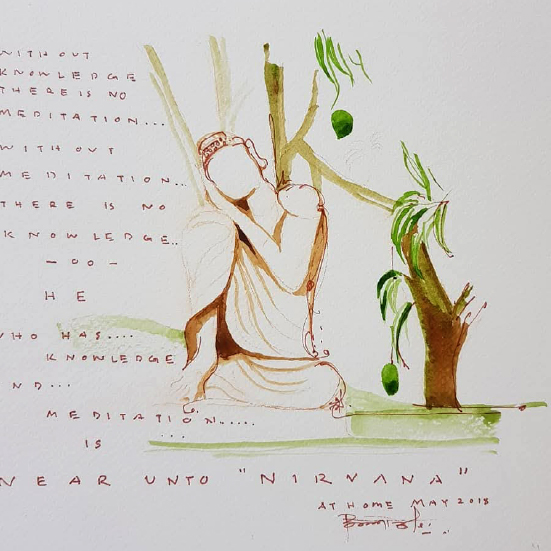 WITHOUT
KNOWLEDGE
THERE IS NO
MEDITATION...
WITHOUT
MEDITATION...
THERE IS NO
KNOWLEDGE..
- 00 -
HE
WHO HAS....
KNOWLEDGE
ND...
MEDITATION.....
IS ...
NEAR UNTO "NIRVANA"
AT HOME MAY 2018